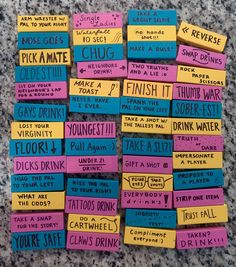 ARM WRESTLE w/ PAL TO YOUR RIGHT
Single Ladies
TAKE A GROUP SELFIE
NOSE GOES
Waterfall TO SEC!
no hands shot!
REVERSE
PICK A MATE
CHUG
MAKE A RULE!
SWAP DRINKS
OLDEST!!!
NEIGHBORS DRINK!
TWO TRUTHS AND A LIE
ROCK PAPER SCISSORS
SIT ON YOUR NEIGHBOR'S LAP
MAKE A TOAST!
FINISH IT
THUMB WAR
GAYS DRINK!
NEVER HAVE I EVER
SPANK THE PAL ON YOUR LEFT
SOBER-EST!
LOSE YOUR VIRGINITY
YOUNGEST!!!
TAKE A SHOT w/ THE TALLEST PAL
DRINK WATER
FLOOR!
Pull Again!
TAKE A SLAP
TRUTH DARE
DICKS DRINK
UNDER 21 DRINK!
GIFT A SHOT
IMPERSONATE A PLAYER
HUG THE PAL TO YOUR LEFT
KISS THE PAL TO YOUR RIGHT
FOUR EYES TAKE SHOTS
PROPOSE TO A PLAYER
WHAT ARE THE ODDS?
TATTOOS DRINK
EVERYBODY drinks!!
STRIP ONE ITEM
TAKE A SNAP FOR THE STORY!
DO A CARTWHEEL!
SOBRIETY
TRUST FALL
YOU'RE SAFE
CLAWS DRINK
Compliment everyone :)
TAKEN? DRINK!!!